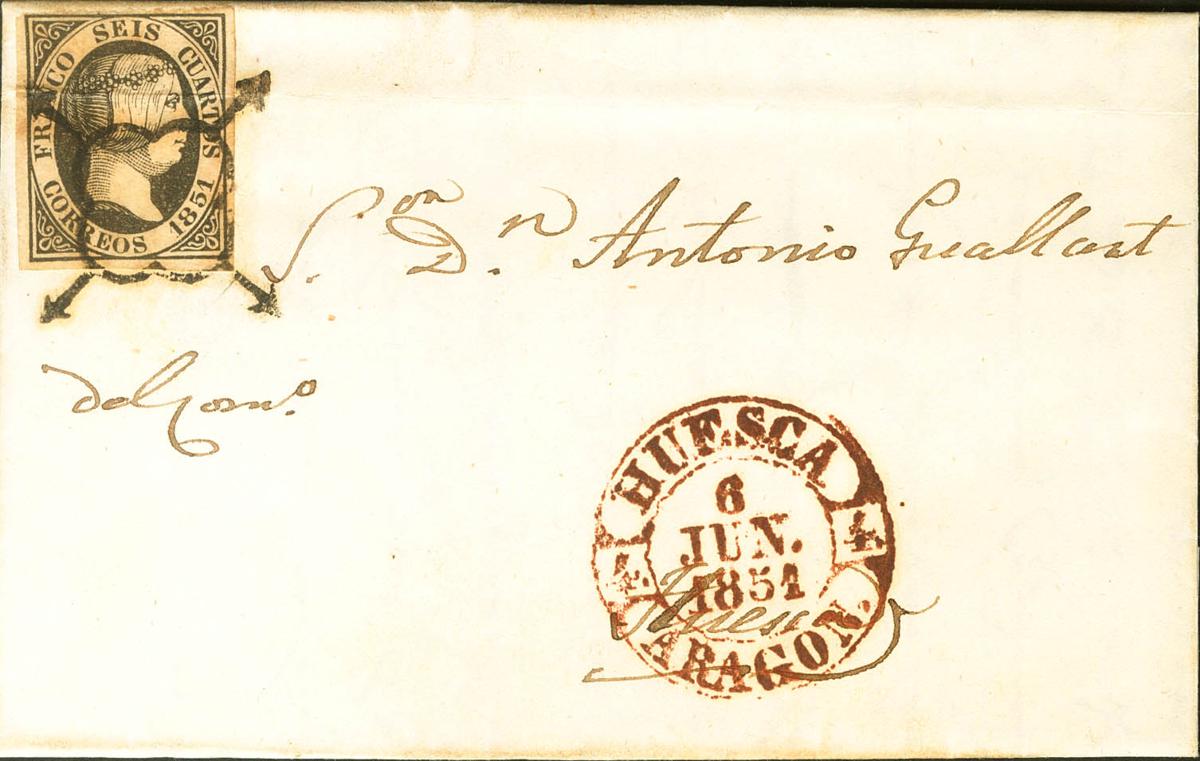 FRANCO SEIS CUARTOS
CORREOS 1851
S.on D.n Antonio Guallart
del Com.o
HUESCA
6
JUN.
1851
4 4
ARAGON.